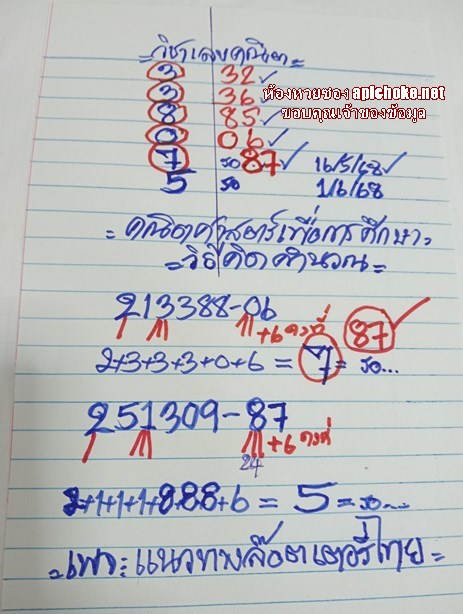 = วิชาเลขคณิต =
3 32 ✓
3 36 ✓
ห้องหวยซอง apichoke.net
8 85 ✓
ขอบคุณเจ้าของข้อมูล
0 06 ✓
7 รอ 87 ✓ 16/5/68 ✓
5 รอ 1/6/68
= คณิตศาสตร์เพื่อการศึกษา =
= วิธีคิดคำนวณ =
213388-06
+6 คงที่ 87 ✓
2+3+3+3+0+6 = 7 = รอ...
251309-87
+6 คงที่
24
2+1+1+1+8+8+8+6 = 5 = รอ...
= เพาะแนวทางล๊อตเตอรี่ไทย =